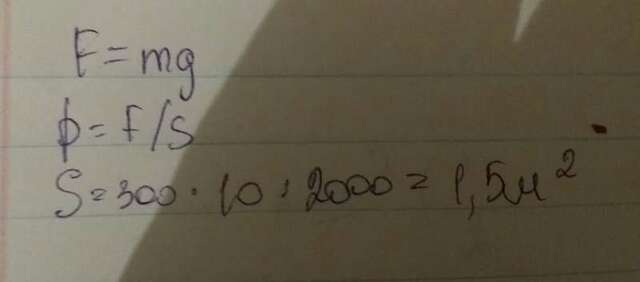 F=mg
p=F/S
S=300·10:2000=1,5м²